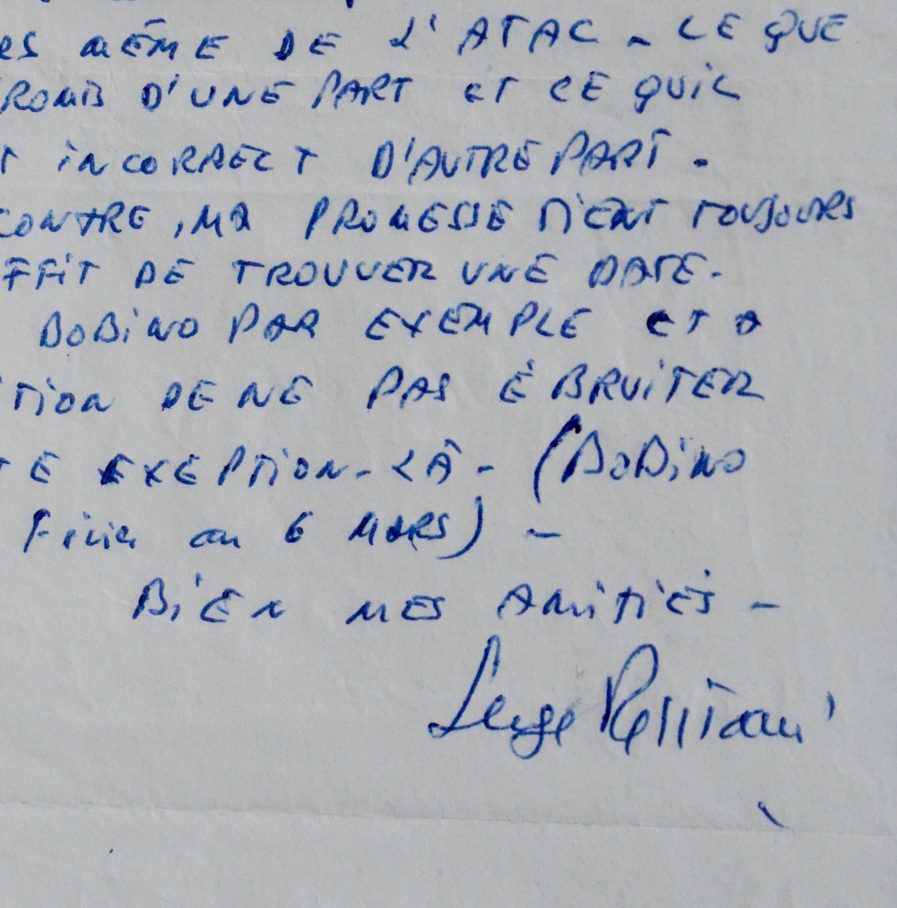 ES MÊME DE L'ATAC - CE QUE
ROMIS D'UNE PART ET CE QUIL
T INCORRECT D'AUTRE PART -
CONTRE, MA PROMESSE TIENT TOUJOURS
FFIT DE TROUVER UNE DATE -
BOBINO PAR EXEMPLE ET A
ITION DE NE PAS ÉBRUITER
TE EXEPTION-LÀ - (BOBINO
au 6 MARS) -
BIEN MES AMITIÉS -
Serge Reggiani